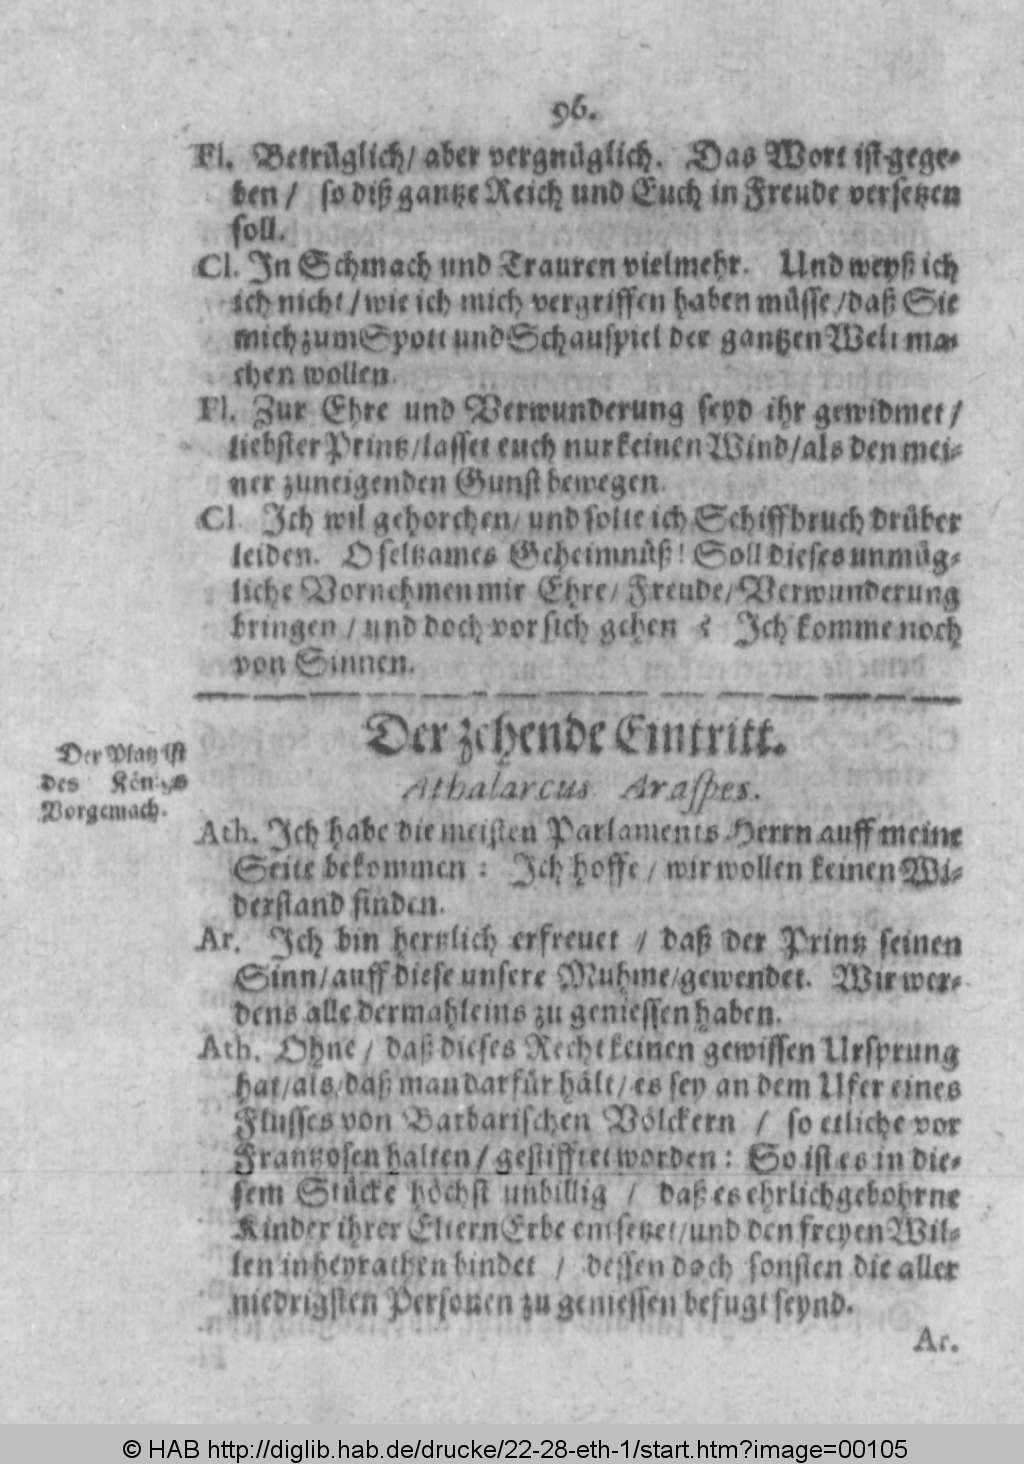 96.
Fl. Betrüglich/ aber vergnüglich. Das Wort ist gege-
ben / so diß gantze Reich und Euch in Freude versetzen
soll.
Cl. In Schmach und Trauren vielmehr. Und weyß ich
ich nicht / wie ich mich vergriffen haben müsse / daß Sie
mich zum Spott und Schauspiel der gantzen Welt ma-
chen wollen.
Fl. Zur Ehre und Verwunderung seyd ihr gewidmet /
liebster Printz / lasset euch nur keinen Wind / als den mei-
ner zuneigenden Gunst bewegen.
Cl. Ich wil gehorchen / und solte ich Schiffbruch drüber
leiden. O seltzames Geheimnüß! Soll dieses unmüg-
liche Vornehmen mir Ehre / Freude / Verwunderung
bringen / und doch vor sich gehen ? Ich komme noch
von Sinnen.
Der zehende Eintritt.
Athalarcus. Araspes.
Der Platz ist
des Königs
Vorgemach.
Ath. Ich habe die meisten Parlaments-Herrn auff meine
Seite bekommen : Ich hoffe / wir wollen keinen Wi-
derstand finden.
Ar. Ich bin hertzlich erfreuet / daß der Printz seinen
Sinn / auff diese unsere Muhme / gewendet. Wir wer-
dens alle dermahleins zu geniessen haben.
Ath. Ohne / daß dieses Recht keinen gewissen Ursprung
hat / als / daß man darfür hält / es sey an dem Ufer eines
Flusses von Barbarischen Völckern / so etliche vor
Frantzosen halten / gestifftet worden : So ist es in die-
sem Stücke höchst unbillig / daß es ehrlichgebohrne
Kinder ihrer Eltern Erbe entsetzet / und den freyen Wil-
len in heyrathen bindet / dessen doch sonsten die aller
niedrigsten Personen zu geniessen befugt seynd.
Ar.
© HAB http://diglib.hab.de/drucke/22-28-eth-1/start.htm?image=00105